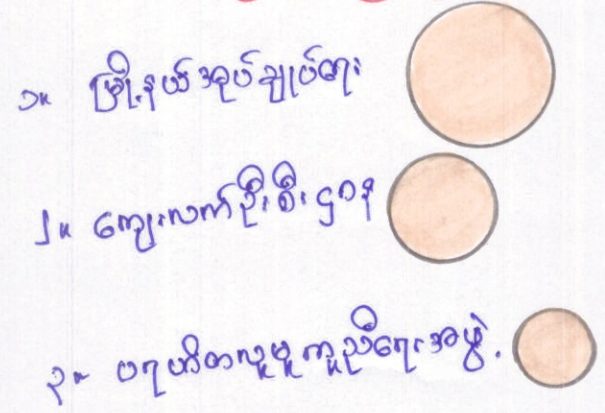 ၁။ မြို့နယ်အုပ်ချုပ်ရေး
၂။ ကျေးလက်ဦးစီးဌာန
၃။ ပရဟိတလူမှုကူညီရေးအဖွဲ့.